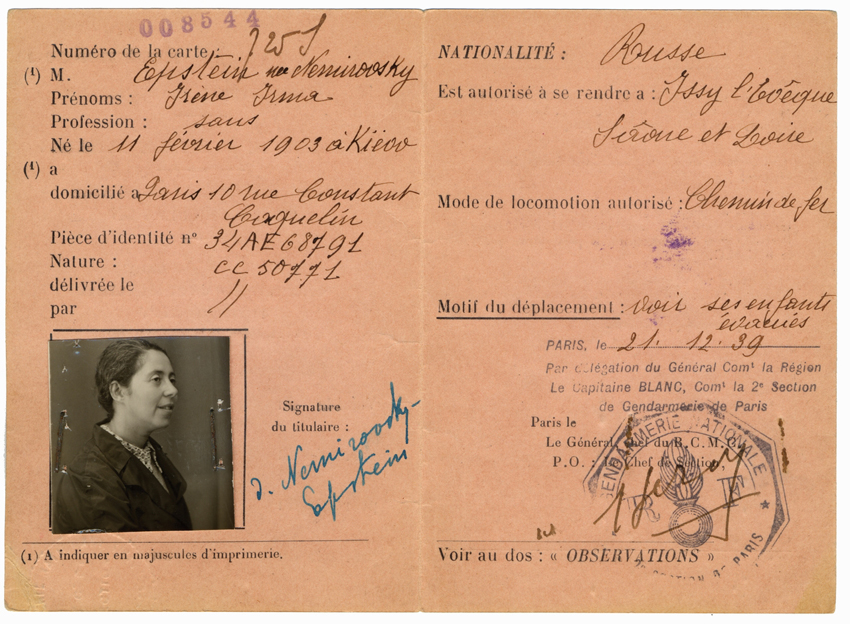 008544
Numéro de la carte : 7255
(1) M. Epstein née Nemirovsky
Prénoms : Irène Irma
Profession : sans
Né le 11 février 1903 à Kiéov
(1) a
domicilié a Paris 10 rue Constant
Coquelin
Pièce d'identité nº 34AE68791
Nature : CC 50771
délivrée le
par //
Signature
du titulaire :
I. Nemirovsky-
Epstein
(1) A indiquer en majuscules d'imprimerie.
NATIONALITÉ : Russe
Est autorisé à se rendre a : Issy l'Evêque
Saône et Loire
Mode de locomotion autorisé : Chemin de fer
Motif du déplacement : voir ses enfants
évacués
PARIS, le 21. 12. 39
Par délégation du Général Comt la Région
Le Capitaine BLANC, Comt la 2e Section
de Gendarmerie de Paris
Paris le
Le Général, Chef du B.C.M.C.
P.O. : Le Chef de Section,
GENDARMERIE NATIONALE
R F
SECTION DE PARIS
Voir au dos : « OBSERVATIONS »